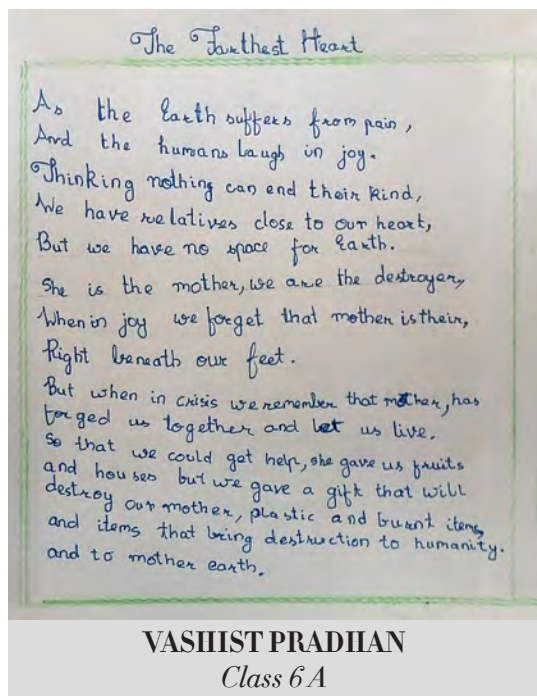 The Farthest Heart
As the Earth suffers from pain,
And the humans Laugh in joy.
Thinking nothing can end their kind,
We have relatives close to our heart,
But we have no space for Earth.
She is the mother, we are the destroyer,
When in joy we forget that mother is their,
Right beneath our feet.
But when in crisis we remember that mother, has
forged us together and let us live.
So that we could get help, she gave us fruits
and houses but we gave a gift that will
destroy our mother, plastic and burnt items
and items that bring destruction to humanity.
and to mother earth.
VASHIST PRADHAN
Class 6 A